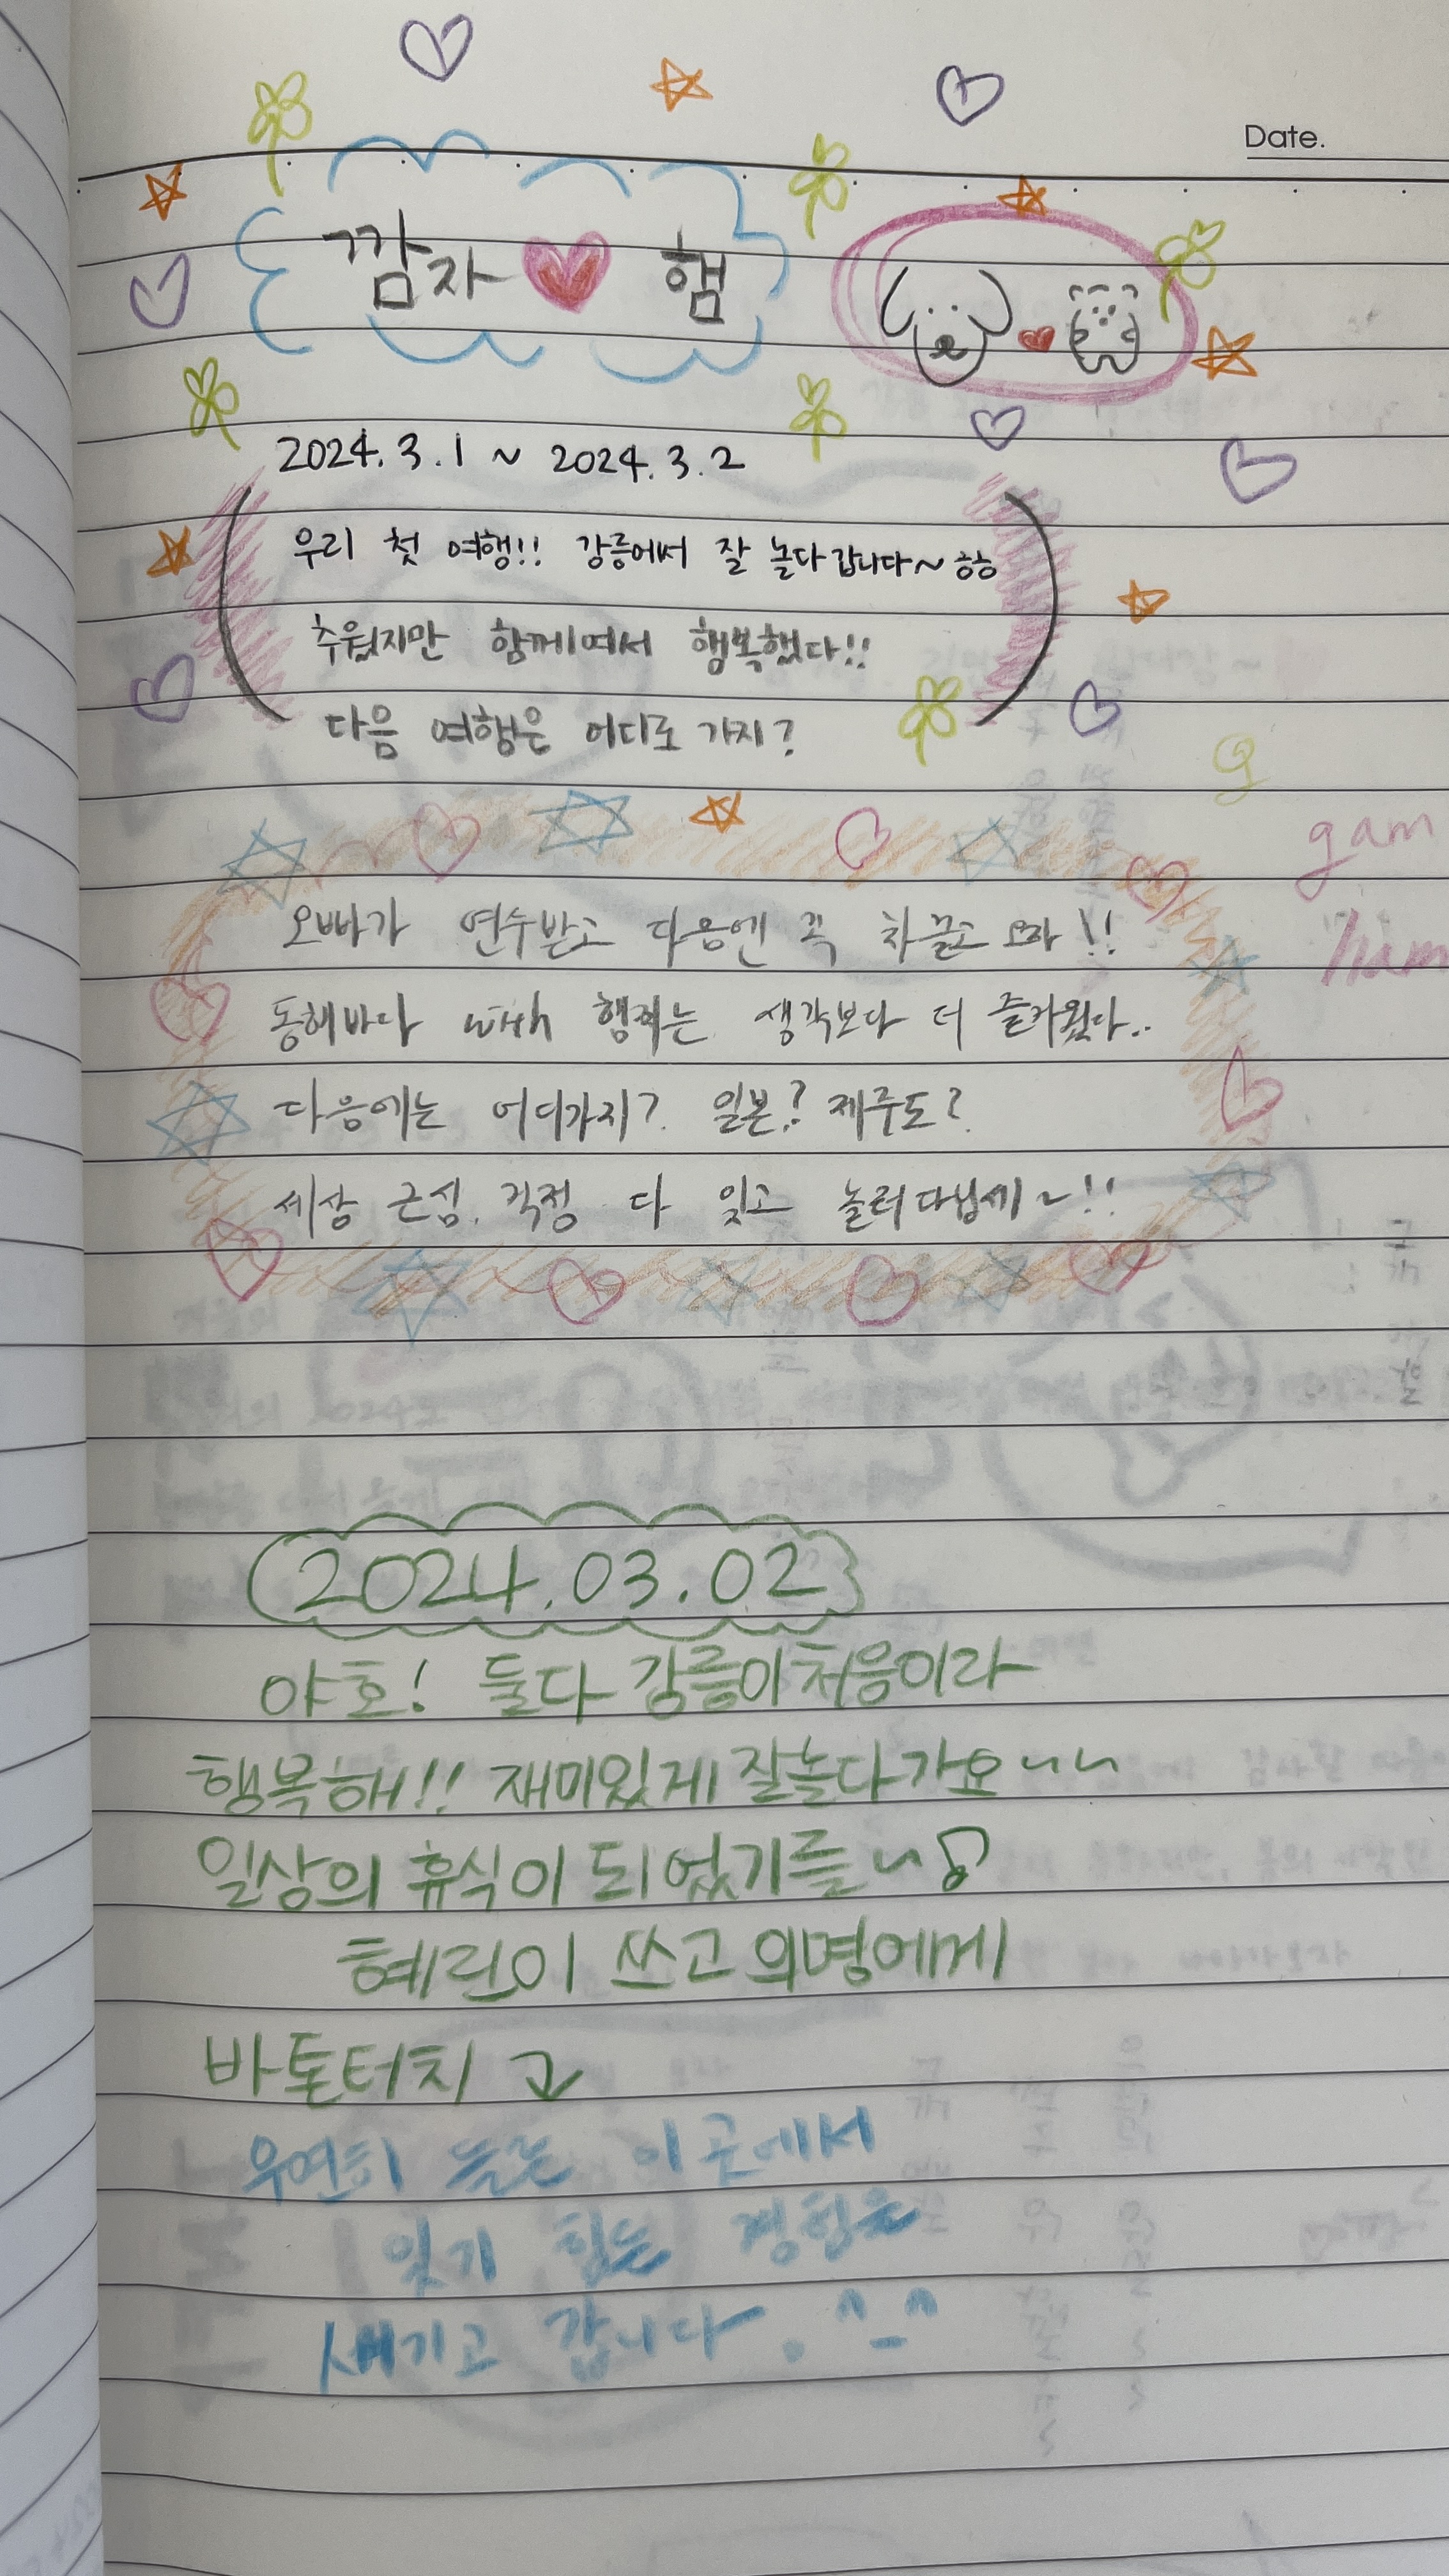 Date.
깜자 햄
2024.3.1 ~ 2024.3.2
우리 첫 여행!! 강릉에서 잘 놀다갑니다~ ㅎㅎ
추웠지만 함께여서 행복했다!!
다음 여행은 어디로 가지?
gam
ham
오빠가 연수받고 다음엔 꼭 차끌고 오자!!
동해바다 with 는 생각보다 더 즐거웠다..
다음에는 어디가지? 일본? 제주도?
세상 근심, 걱정 다 잊고 놀러다닙세~!!
2024.03.02
야호! 둘다 강릉이 처음이라
행복해!! 재미있게 잘놀다가요~~
일상의 휴식이 되었기를~♫
혜린이 쓰고 의명에게
바톤터치
우연히 들른 이곳에서
잊기 힘든 경험을
새기고 갑니다. ^_^